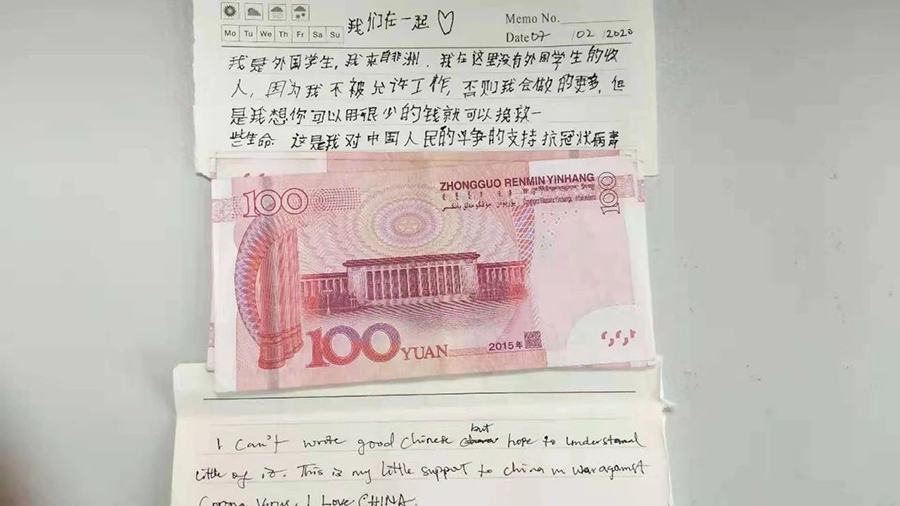 Mo Tu We Th Fr Sa Su
我们在一起
Memo No.
Date 07 /02 /2020
我是外国学生,我来自非洲.我在这里没有外国学生的收
人,因为我不被允许工作,否则我会做的更多,但
是我想你可以用很少的钱就可以挽救一
些生命.这是我对中国人民的斗争的支持抗冠状病毒
100
ZHONGGUO RENMIN YINHANG
100
100 YUAN
2015年
I can't wrote good chinese but hope to understand
little of it. This is my little support to china in war against
Corona Virus. I Love CHINA.